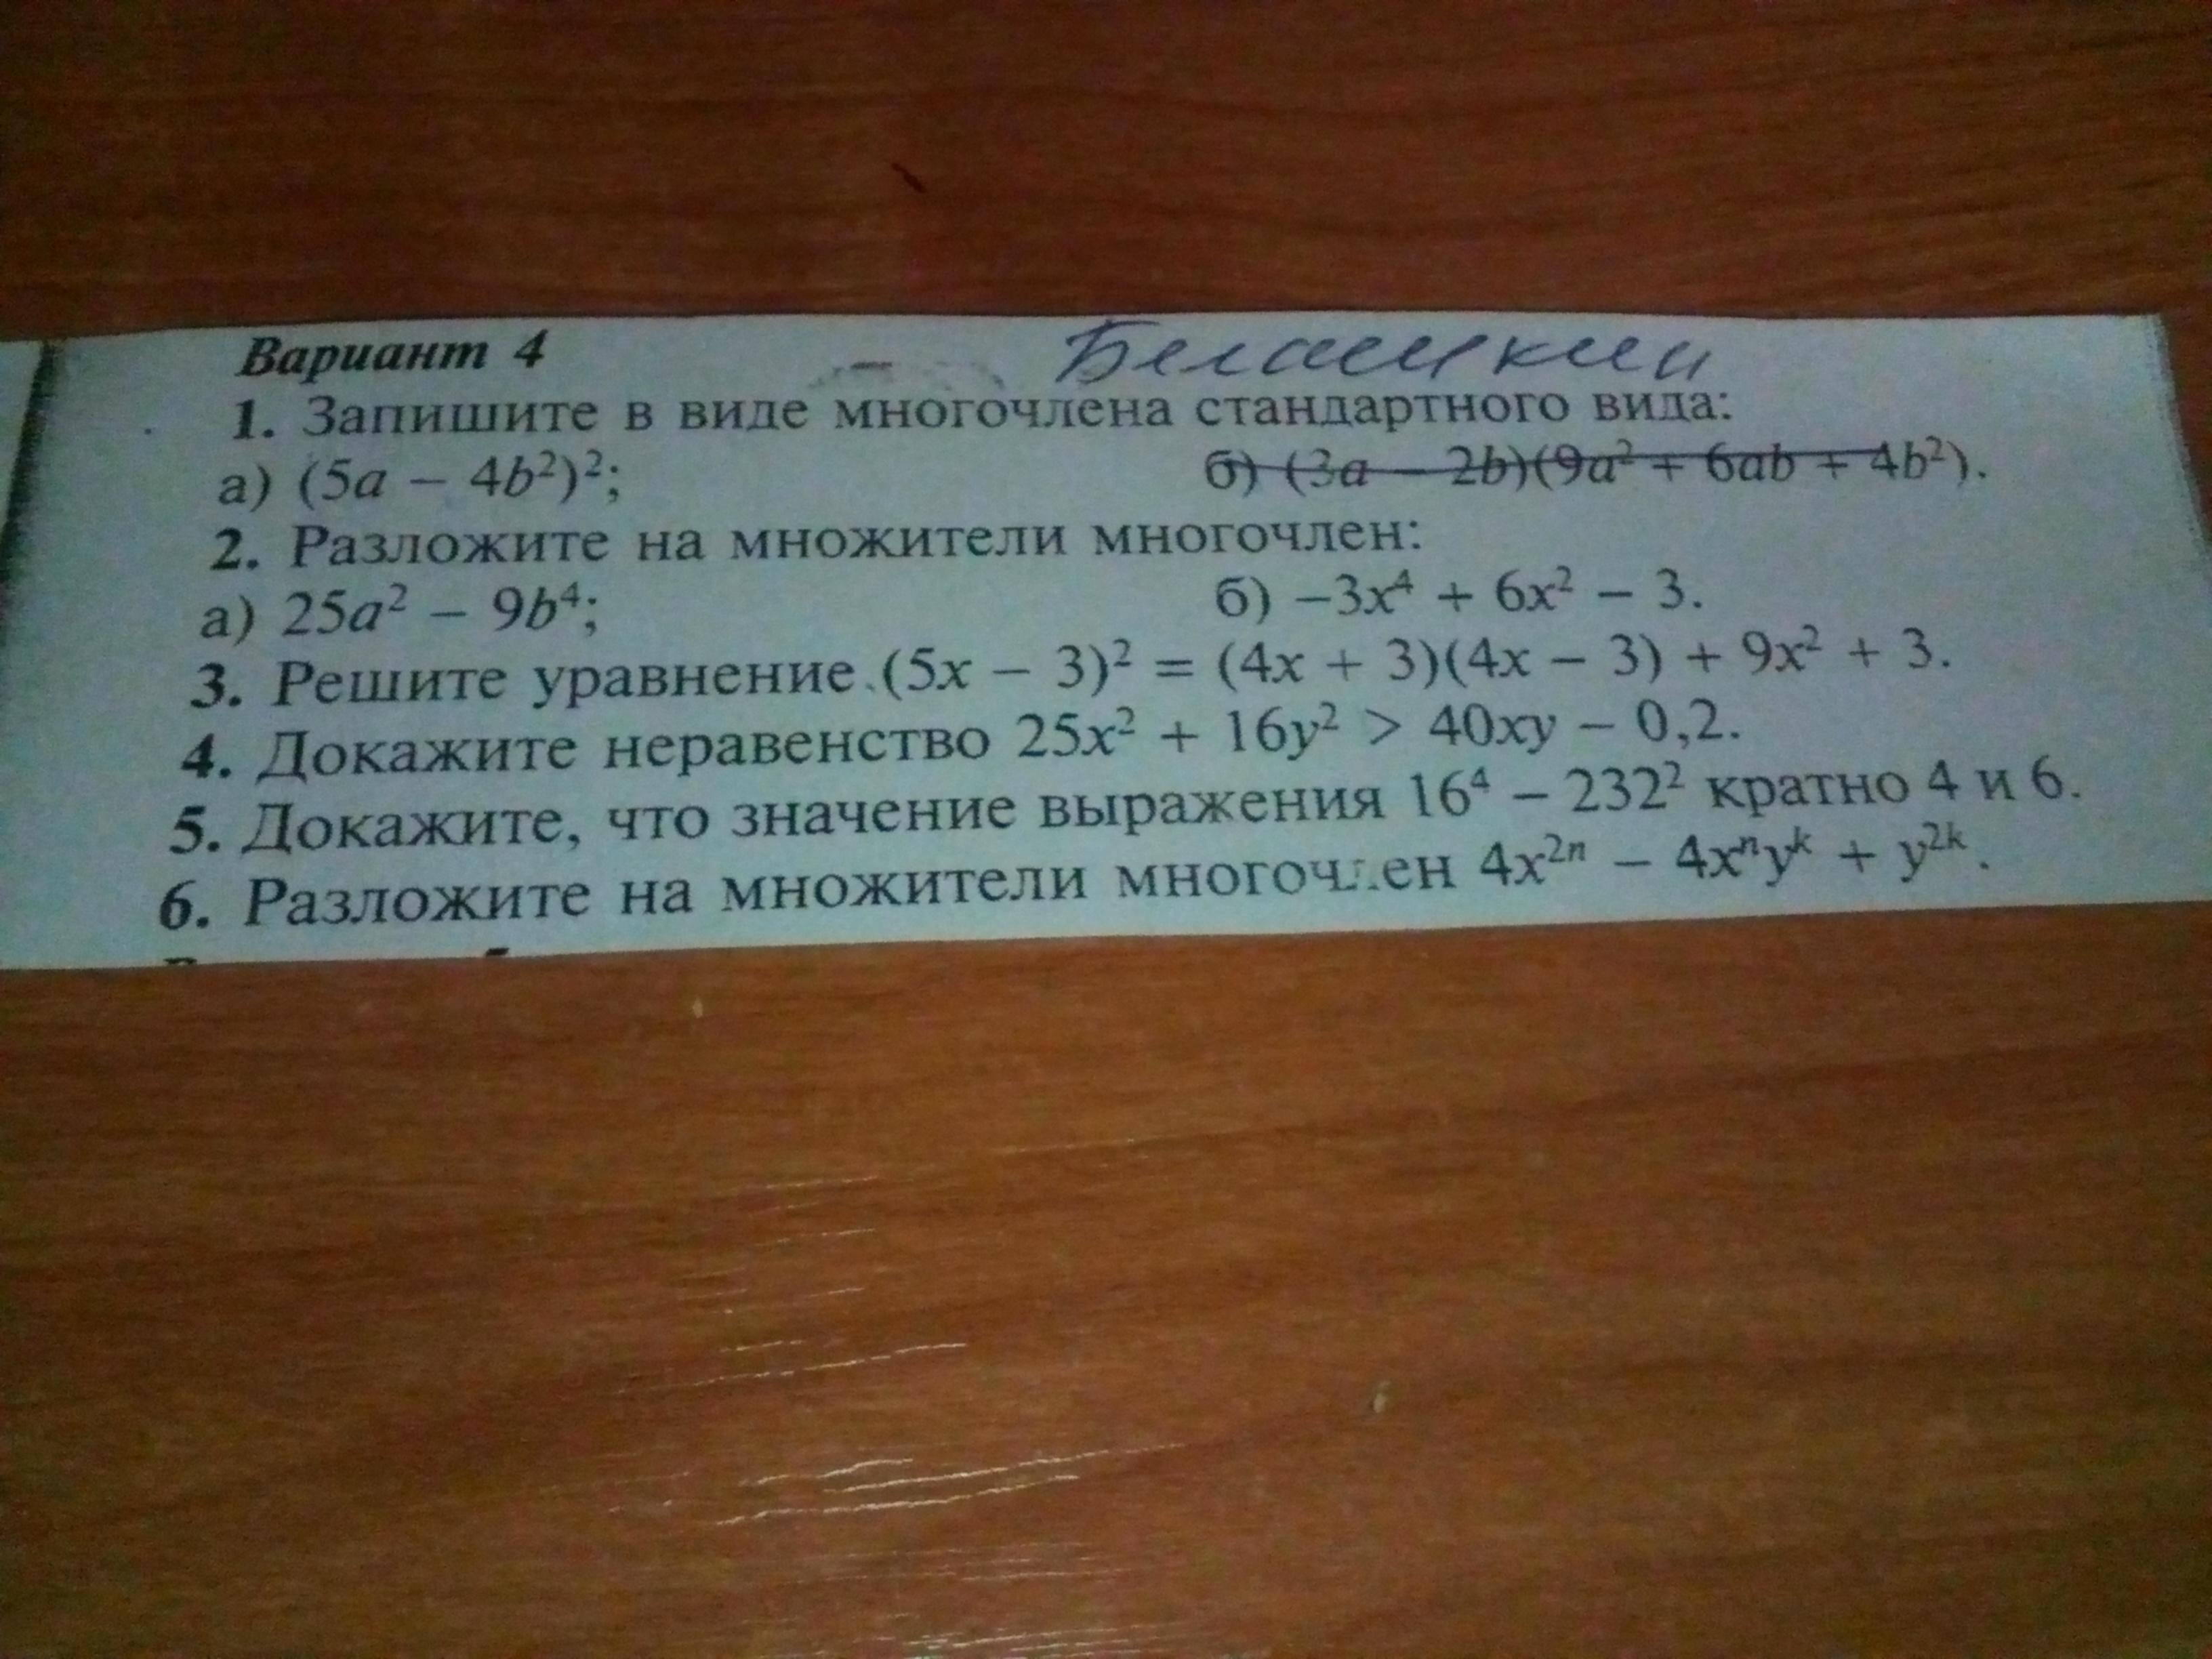 Вариант 4
1. Запишите в виде многочлена стандартного вида:
а) (5a − 4b²)²; б) (3a − 2b)(9a² + 6ab + 4b²).
2. Разложите на множители многочлен:
а) 25a² − 9b⁴; б) −3x⁴ + 6x² − 3.
3. Решите уравнение (5x − 3)² = (4x + 3)(4x − 3) + 9x² + 3.
4. Докажите неравенство 25x² + 16y² > 40xy − 0,2.
5. Докажите, что значение выражения 16⁴ − 232² кратно 4 и 6.
6. Разложите на множители многочлен 4x²ⁿ − 4xⁿyᵏ + y²ᵏ.